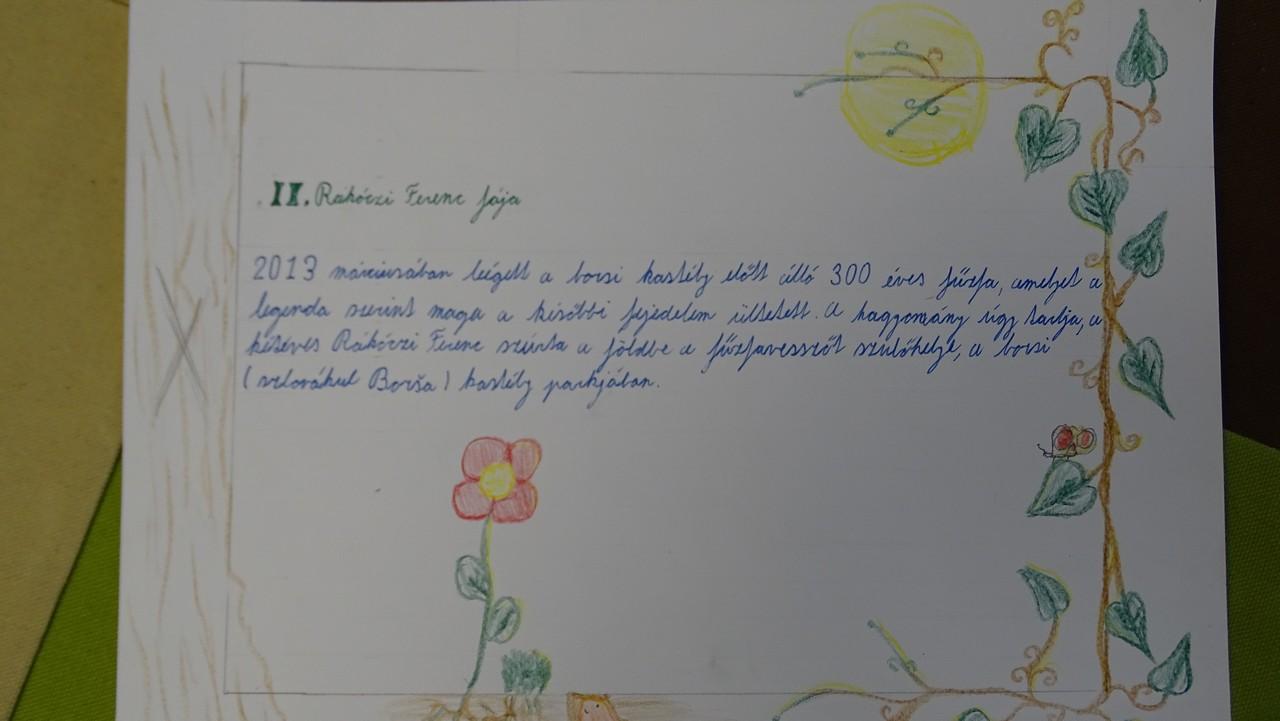 II. Rákóczi Ferenc fája
2013 márciusában leégett a borsi kastély előtt álló 300 éves fűzfa, amelyet a
legenda szerint maga a későbbi fejedelem ültetett. A hagyomány úgy tartja, a
kétéves Rákóczi Ferenc szúrta a földbe a fűzfavesszőt szülőhelye, a borsi
(szlovákul Borša) kastély parkjában.